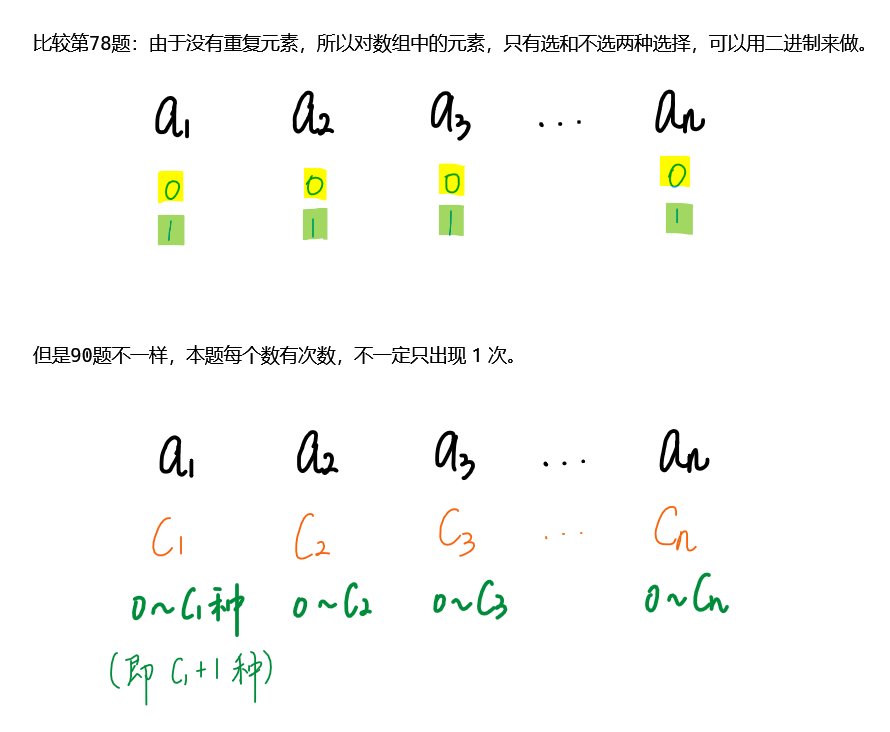 比较第78题：由于没有重复元素，所以对数组中的元素，只有选和不选两种选择，可以用二进制来做。
a₁ a₂ a₃ ... aₙ
0 0 0 0
1 1 1 1
但是90题不一样，本题每个数有次数，不一定只出现 1 次。
a₁ a₂ a₃ ... aₙ
C₁ C₂ C₃ ... Cₙ
0~C₁种 0~C₂ 0~C₃ 0~Cₙ
(即 C₁+1 种)